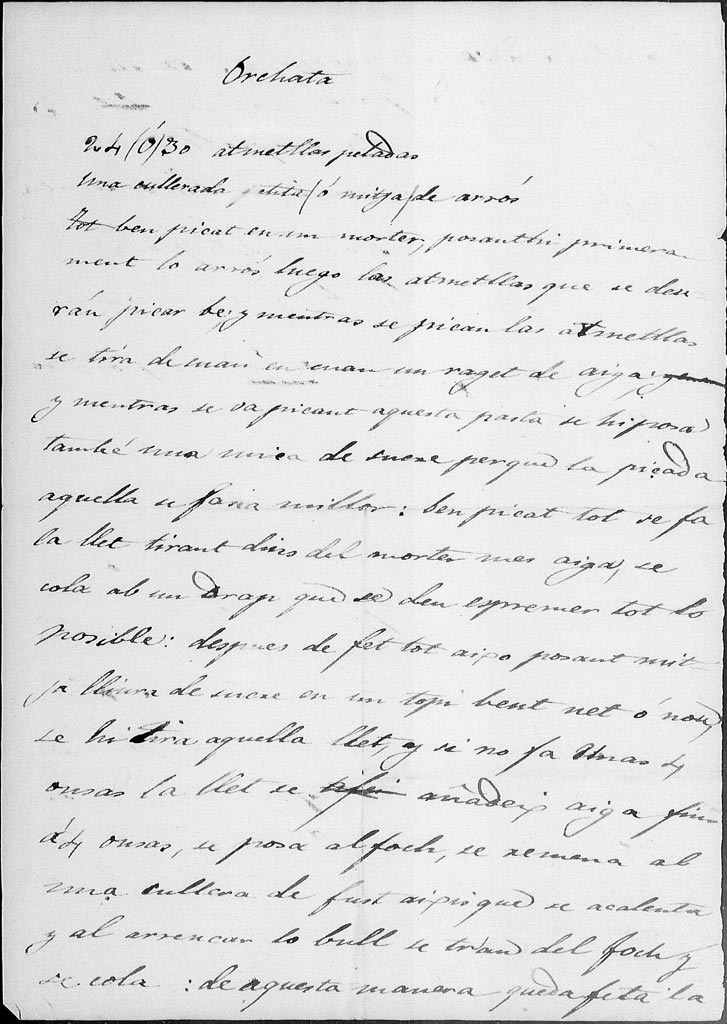 Orchata
24 (ó) 30 atmetllas peladas
Una cullerada petita (ó mitja) de arrós
Tot ben picat en un morter, posanthi primera-
ment lo arrós luego las atmetllas que se deu-
rán picar be; y mentras se pican las atmetllas
se tira de cuan en cuan un raget de aiga;
y mentras se va picant aquesta pasta se hi posa
també una mica de sucre perque la picada
aquella se fasia millor: ben picat tot se fa
la llet tirant dins del morter mes aiga, se
cola ab un drap que se deu espremer tot lo
posible: despues de fet tot aixo posant mit-
ja lliura de sucre en un topi bent net ó nou,
se hi tira aquella llet, y si no fa Unas 4
ousas la llet se añadeix aiga fins
á 4 ousas, se posa al foch, se remena ab
una cullera de fust aixis que se acalenta
y al arrencar lo bull se trau del foch y
se cola : de aquesta manera queda feta la